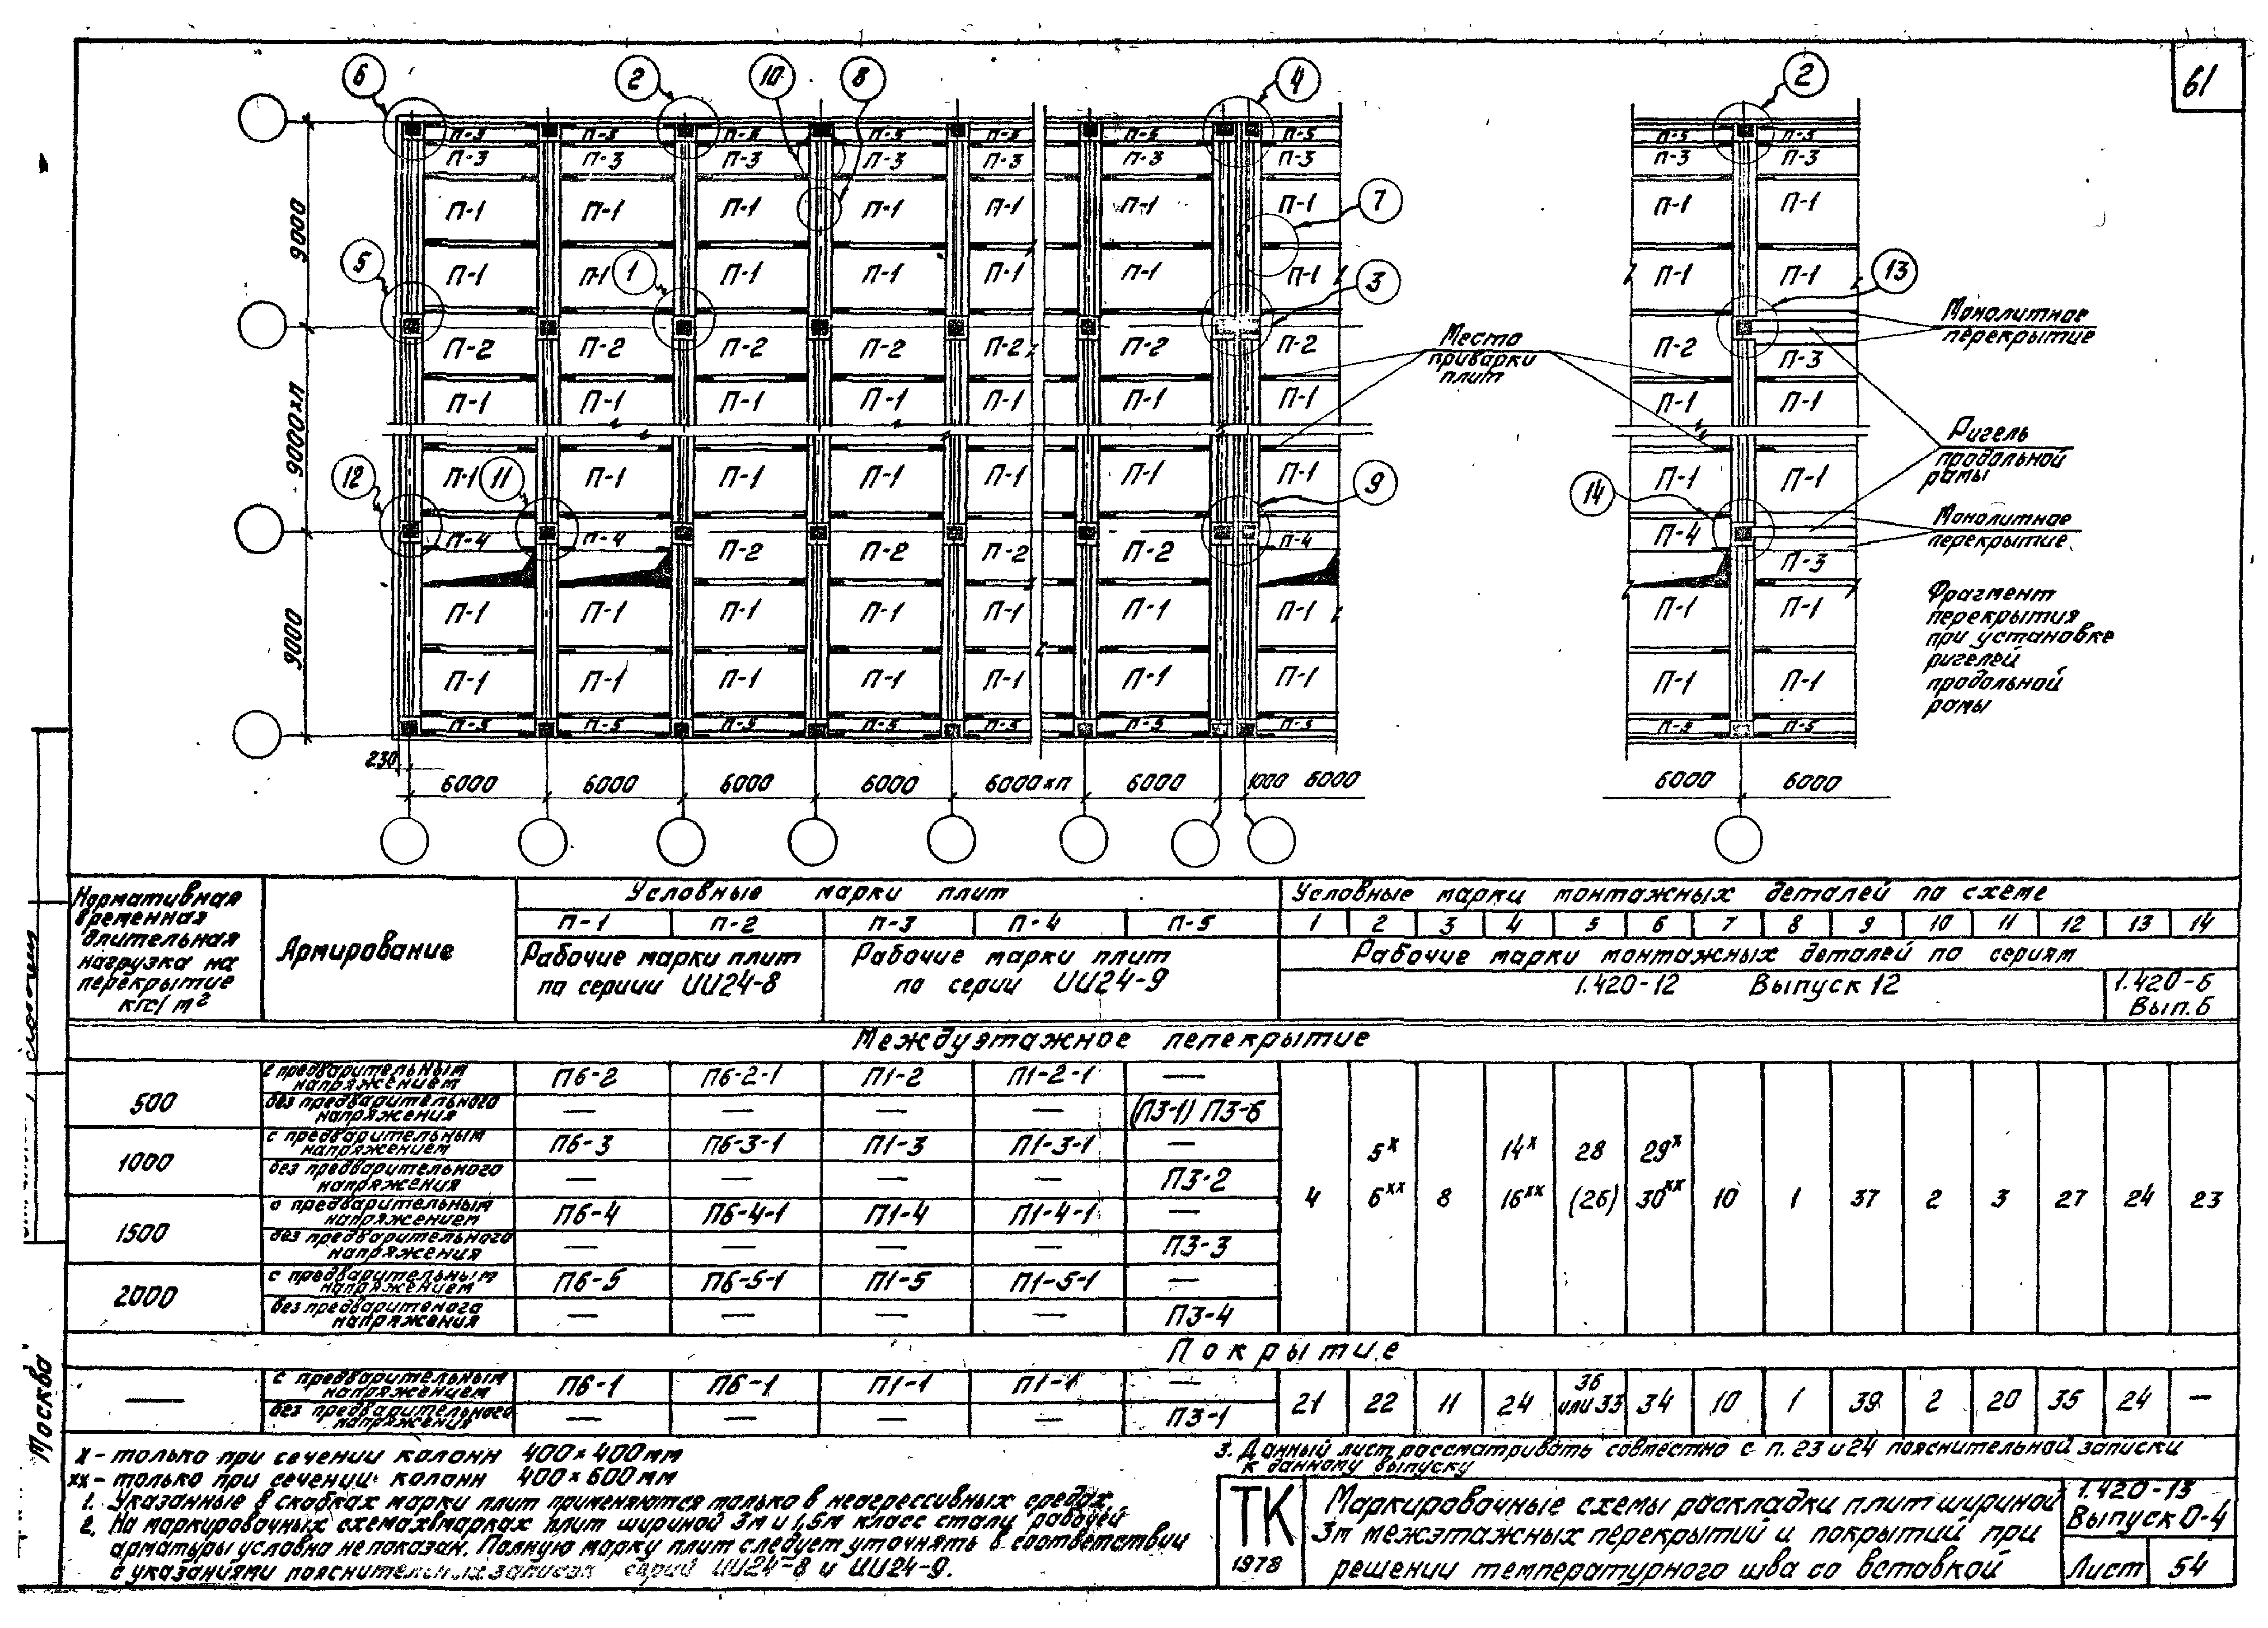 61
6 2 10 8 4 2
П-5 П-5 П-5 П-5 П-5 П-5 П-5 П-5 П-5
П-3 П-3 П-3 П-3 П-3 П-3 П-3 П-3 П-3
7
9000 П-1 П-1 П-1 П-1 П-1 П-1 П-1 П-1 П-1
5 1 3 13
П-1 П-1 П-1 П-1 П-1 П-1 П-1 П-1 П-1
Монолитное
перекрытие
П-2 П-2 П-2 П-2 П-2 П-2 П-2 П-2 П-3
Место
приварки
плит
9000хп П-1 П-1 П-1 П-1 П-1 П-1 П-1 П-1 П-1
Ригель
продольной
рамы
12 11 9 14
П-1 П-1 П-1 П-1 П-1 П-1 П-1 П-1 П-1
Монолитное
перекрытие
П-4 П-4 П-2 П-2 П-2 П-2 П-4 П-4 П-3
9000 П-1 П-1 П-1 П-1 П-1 П-1 П-1 П-1 П-1
П-1 П-1 П-1 П-1 П-1 П-1 П-1 П-1 П-1
П-5 П-5 П-5 П-5 П-5 П-5 П-5 П-5 П-5
Фрагмент
перекрытия
при установке
ригелей
продольной
рамы
230
6000 6000 6000 6000 6000хп 6000 1000 6000 6000 6000
Нормативная
временная
длительная
нагрузка на
перекрытие
кгс/м²
Армирование
Условные марки плит
П-1 П-2 П-3 П-4 П-5
Рабочие марки плит
по серии ИИ24-8
Рабочие марки плит
по серии ИИ24-9
Условные марки монтажных деталей по схеме
1 2 3 4 5 6 7 8 9 10 11 12 13 14
Рабочие марки монтажных деталей по сериям
1.420-12 Выпуск 12
1.420-6
Вып.6
Междуэтажное пепекрытие
500
с предварительным
напряжением П6-2 П6-2-1 П1-2 П1-2-1 —
без предварительного
напряжения — — — — (П3-1) П3-6
1000
с предварительным
напряжением П6-3 П6-3-1 П1-3 П1-3-1 —
без предварительного
напряжения — — — — П3-2
1500
с предварительным
напряжением П6-4 П6-4-1 П1-4 П1-4-1 —
без предварительного
напряжения — — — — П3-3
2000
с предварительным
напряжением П6-5 П6-5-1 П1-5 П1-5-1 —
без предваритеного
напряжения — — — — П3-4
5ˣ 14ˣ 28 29ˣ
4 6ˣˣ 8 16ˣˣ (26) 30ˣˣ 10 1 37 2 3 27 24 23
Покрытие
—
с предварительным
напряжением П6-1 П6-1 П1-1 П1-1 —
без предварительного
напряжения — — — — П3-1
21 22 11 24 36 или 33 34 10 1 39 2 20 35 24 —
х - только при сечении колонн 400×400мм
хх - только при сечении колонн 400×600мм
1. Указанные в скобках марки плит применяются только в неагрессивных средах
2. На маркировочных схемах в марках плит шириной 3м и 1,5м класс стали рабочей
арматуры условно не показан. Полную марку плит следует уточнять в соответствии
с указаниями пояснительных записок серий ИИ24-8 и ИИ24-9.
3. Данный лист рассматривать совместно с п. 23 и 24 пояснительной записки
к данному выпуску
ТК
1978
Маркировочные схемы раскладки плит шириной
3м межэтажных перекрытий и покрытий при
решении температурного шва со вставкой
1.420-13
Выпуск 0-4
Лист 54
Москва